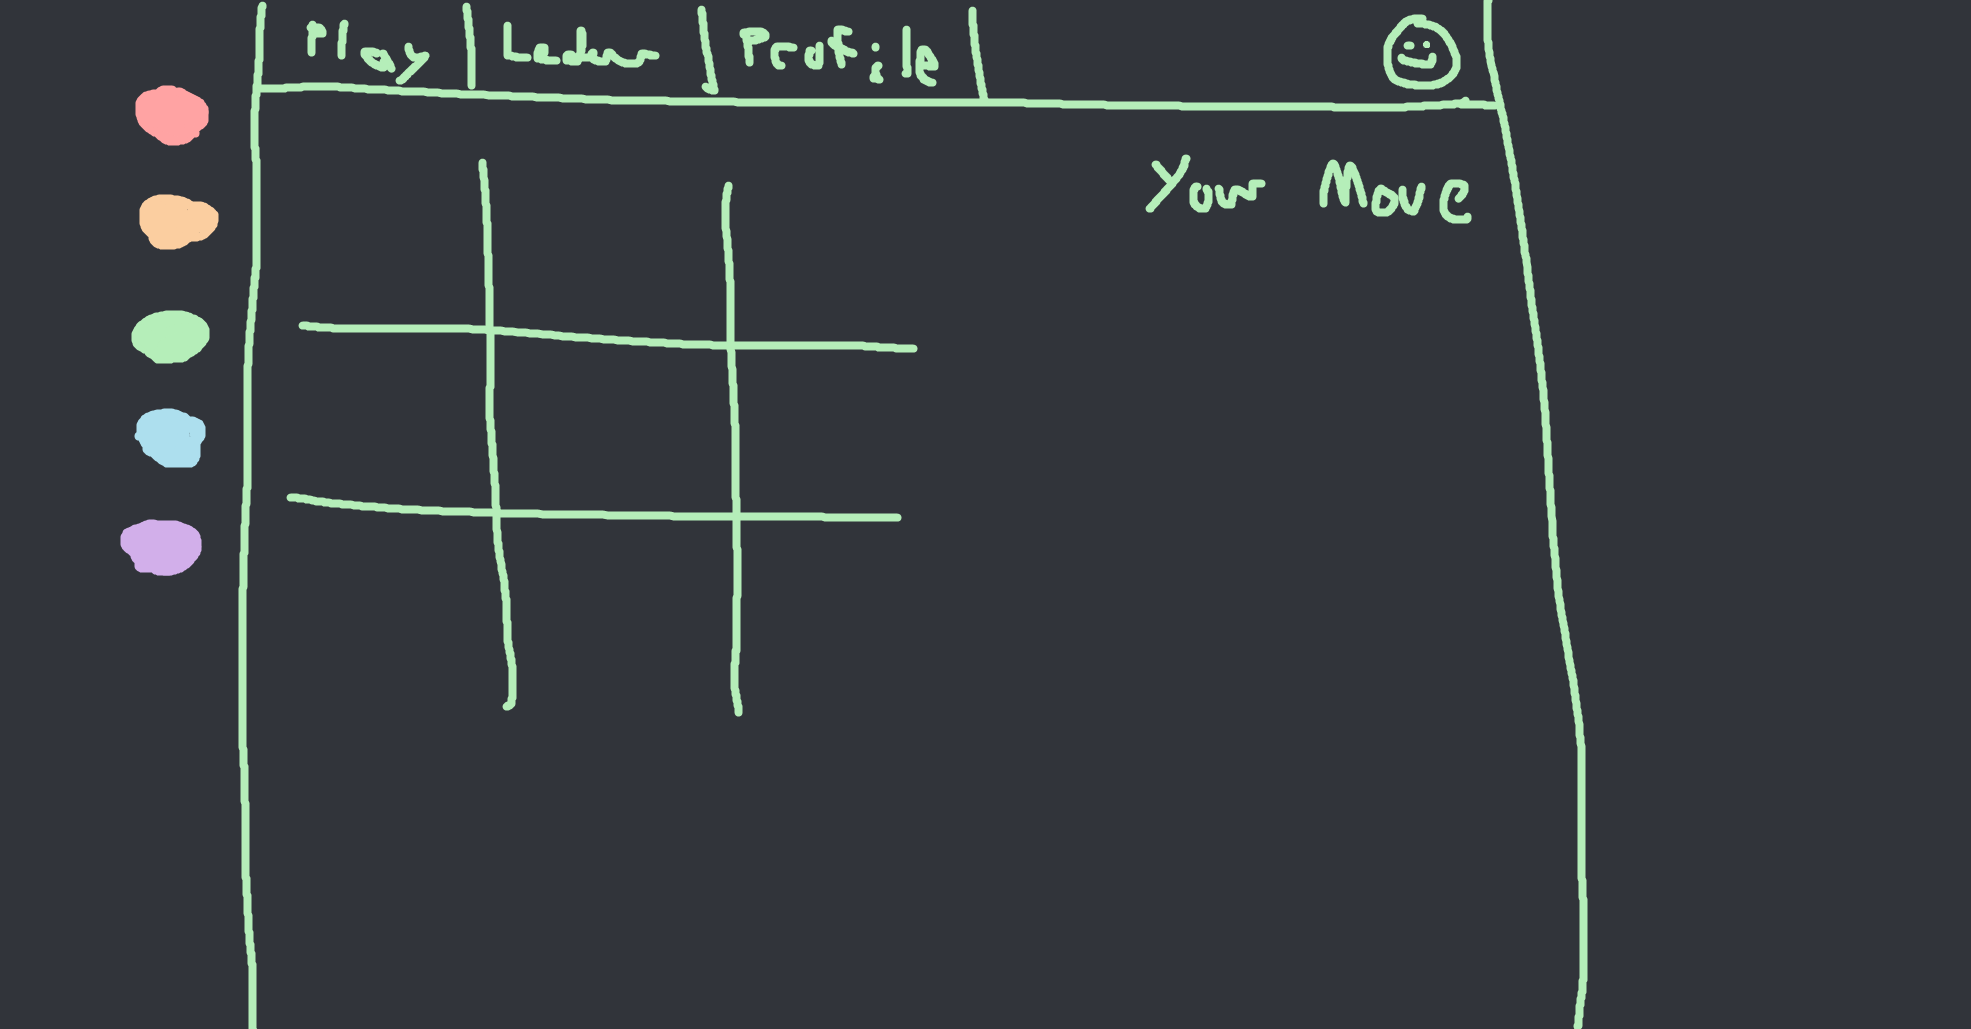 Play Leader Profile
Your Move